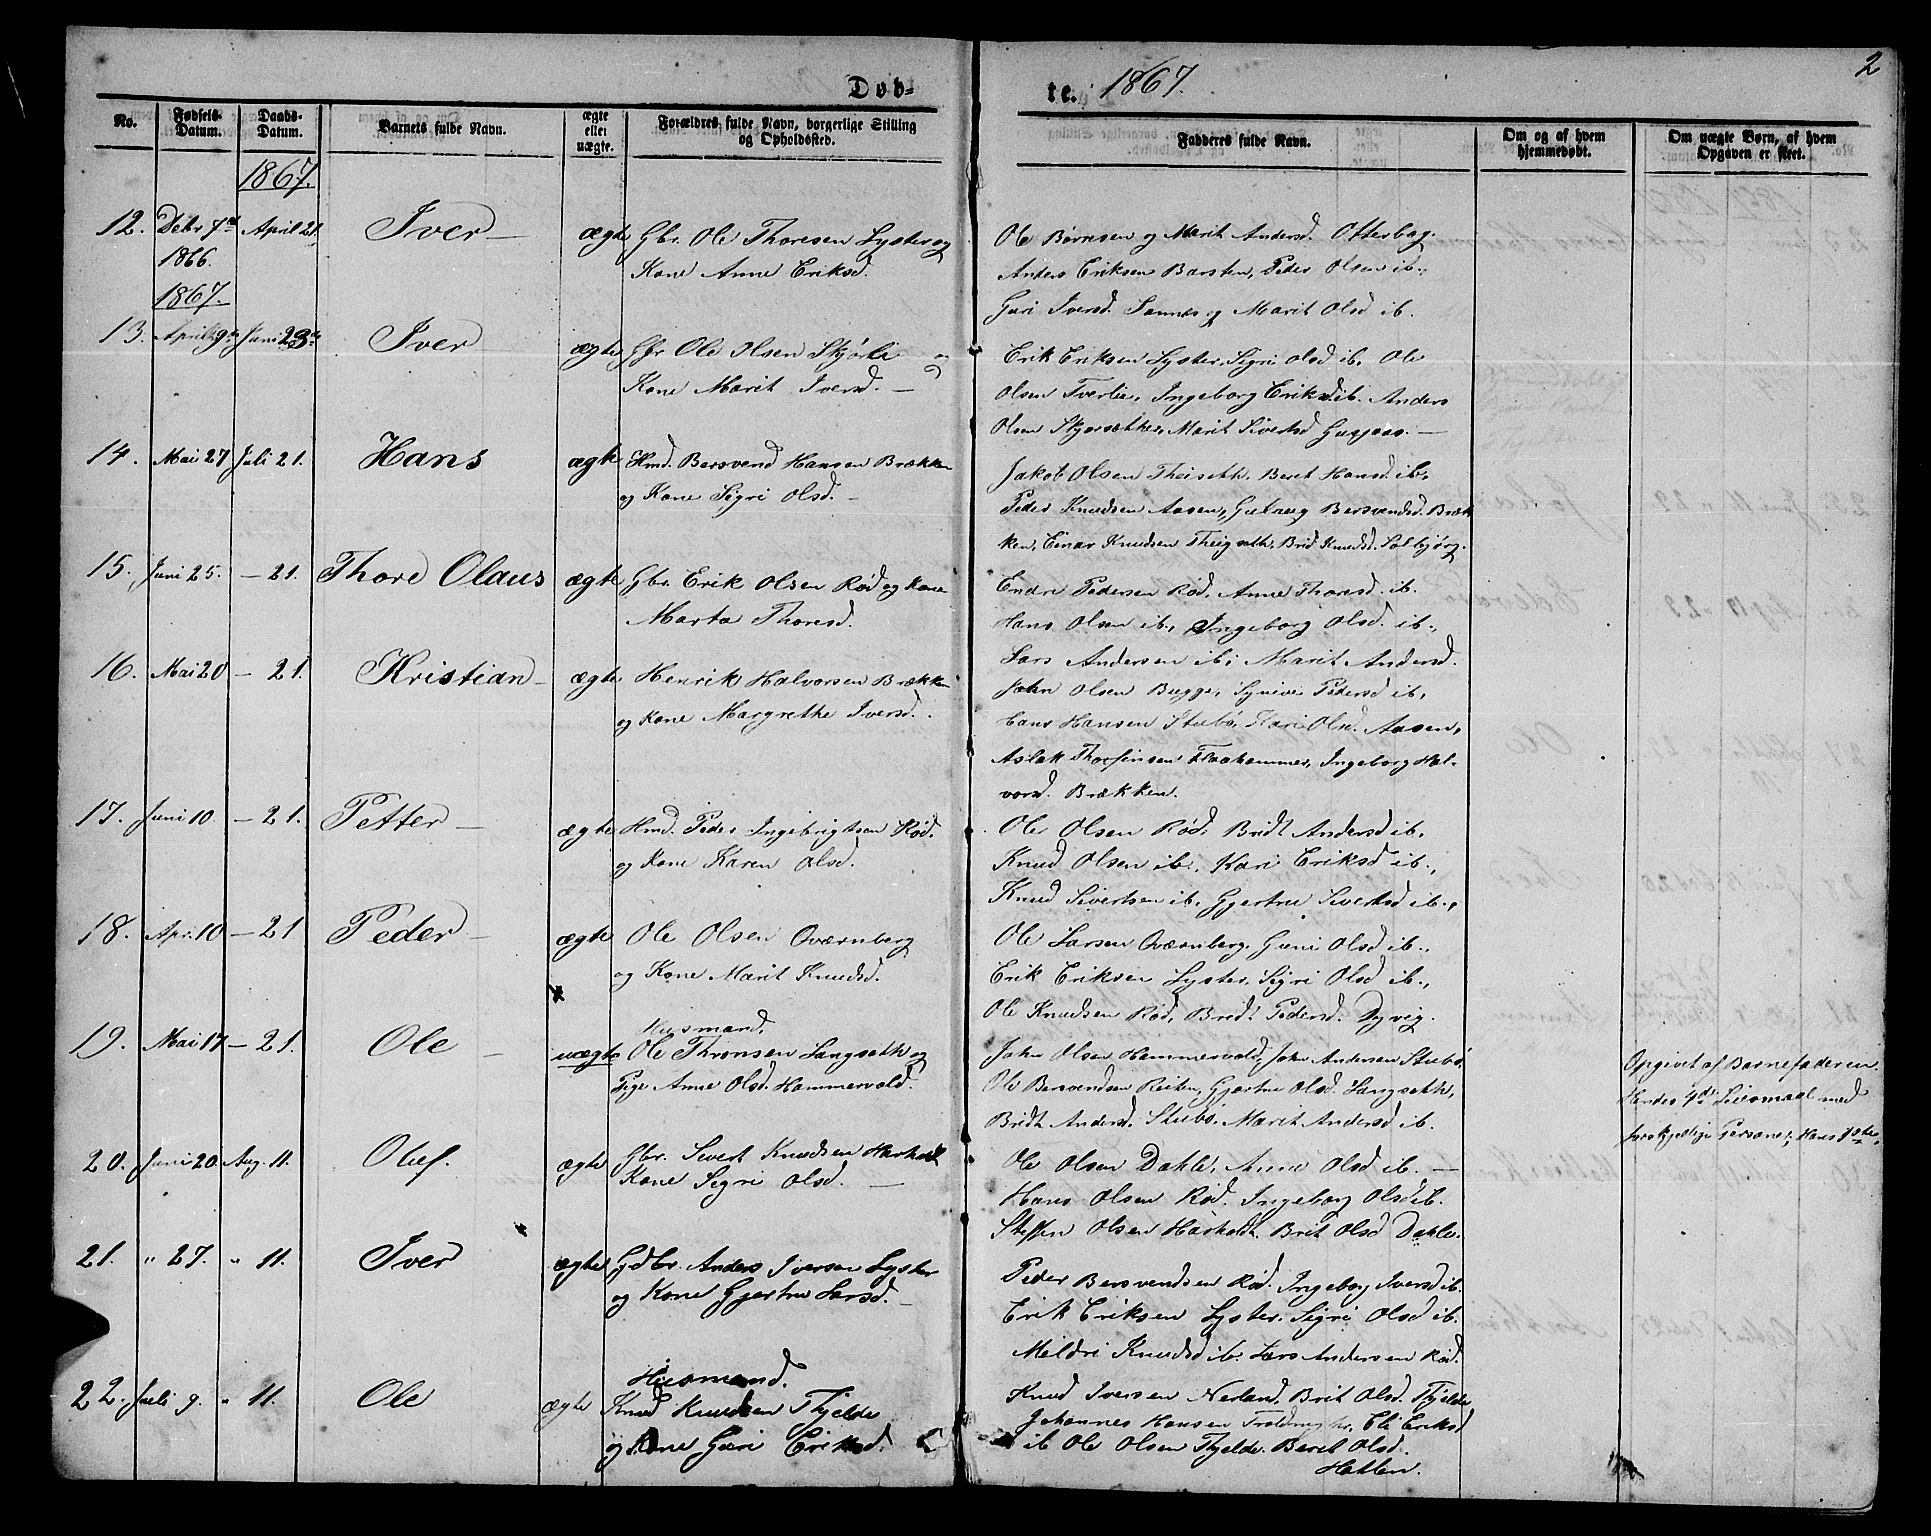 Døb-
te. 1867.
2
No.
Fødsels-Datum.
Daabs-Datum.
Barnets fulde Navn.
ægte eller uægte.
Forældres fulde Navn, borgerlige Stilling og Opholdssted.
Fadderes fulde Navn.
Om og af hvem hjemmedøbt.
Om uægte Børn, af hvem Opgaven er skeet.
1867.
12. Debr 7de 1866. April 21. Iver ægte Gbr. Ole Thoresen Lyster og
Kone Anne Eriksd.
Ole Børresen og Marit Andersd. Otterbog.
Anders Eriksen Barsten, Peder Olsen ib.,
Guri Iversd. Sannes og Marit Olsd ib.
1867.
13. April 9de Juni 23de Iver ægte Gbr Ole Olsen Skjørli og
Kone Marit Iversd. —
Erik Eriksen Lyster, Sigri Olsd ib. Ole
Olsen Tverlie, Ingeborg Eriksd. ib. Anders
Olsen Skjorsætter, Marit Sivertsd Gusjaas. —
14. Mai 27 Juli 21. Hans ægte Hmd. Bersvend Hansen Brækken
og Kone Sigri Olsd. —
Jakob Olsen Theiseth. Beret Hansd ib.,
Peder Knudsen Aasen, Gulaug Bersvendsd. Bræk
ken, Einar Knudsen Theigseth, Brid Knudsd. Solbjørg.
15. Juni 25. — 21. Thore Olaus ægte Gbr. Erik Olsen Rød og Kone
Marta Thoresd.
Endre Pedersen Rød, Anne Thoresd. ib.
Hans Olsen ib., Ingeborg Olsd. ib.,
Lars Andersen ib; Marit Andersd.
16. Mai 20 — 21. Kristian — ægte Henrik Halvorsen Brækken
og Kone Margrethe Iversd.
John Olsen Bugge, Synive Pedersd ib.
Hans Hansen Stubø, Kari Olsd. Aasen,
Aslak Thorfinsen Flaahammer, Ingeborg Hal-
vorsd. Brækken.
17. Juni 10. — 21. Petter — ægte Hmd. Peder Ingebrigtsen Rød.
og Kone Karen Olsd.
Ole Olsen Rød, Bridt Andersd ib.
Knud Olsen ib., Kari Eriksd ib.,
Knud Sivertsen ib. Gjertru Sivertsd ib.,
18. Apr. 10 — 21 Peder — ægte Ole Olsen Qværnberg
og Kone Marit Knudsd.
Ole Larsen Qværnberg. Guni Olsd ib.,
Erik Eriksen Lyster. Sigri Olsd ib.,
Ole Knudsen Rød, Bredt Pedersd. Dyvig.
19. Mai 17 — 21. Ole — uægte Husmand.
Ole Thronsen Langseth og
Pige Anne Olsd. Hammervold.
John Olsen Hammervold, John Andersen Stubø,
Ole Bersvendsen Reiten, Gjertru Olsd. Langseth,
Bridt Andersd. Stubø. Marit Andersd ib.
Opgivet af Barnefaderen.
Hendes 4de Leiermaal med
forskjellige Personer, Hans 1ste.
20. Juni 20 Aug. 11. Oluf. ægte Gbr. Sivert Knudsen Harholt
Kone Sigri Olsd. —
Ole Olsen Dahle, Anne Olsd ib. —
Hans Olsen Rød. Ingeborg Olsd ib.
Steffen Olsen Harholdt. Brit Olsd Dahle.
21. " 27. " 11. Iver ægte Gdbr. Anders Iversen Lyster
og Kone Gjertru Larsd. —
Peder Bersvendsen Rød. Ingeborg Iversd ib.
Erik Eriksen Lyster. Sigri Olsd ib.
Mildri Knudsd ib. Lars Andersen Rød.
22. Juli 9. " 11. Ole ægte Husmand.
Knud Knudsen Thjelde
og Kone Guri Eriksd.
Knud Iversen Nerland, Brit Olsd. Thjelde
Johannes Hansen Eli Eriksd
ib Ole Olsen Thjelde. Beret Olsd.
Hatlen.